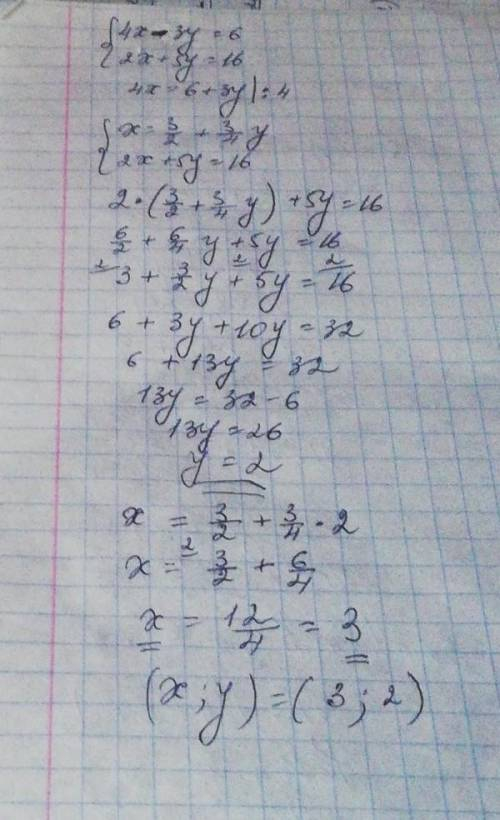 {4x - 3y = 6
{2x + 5y = 16
4x = 6 + 3y | : 4
{x = 3/2 + 3/4 y
{2x + 5y = 16
2 · (3/2 + 3/4 y) + 5y = 16
6/2 + 6/4 y + 5y = 16
2 3 + 3/2 y + 2 5y = 2 16
6 + 3y + 10y = 32
6 + 13y = 32
13y = 32 - 6
13y = 26
y = 2
x = 3/2 + 3/4 · 2
x = 2 3/2 + 6/4
x = 12/4 = 3
(x ; y) = ( 3 ; 2 )